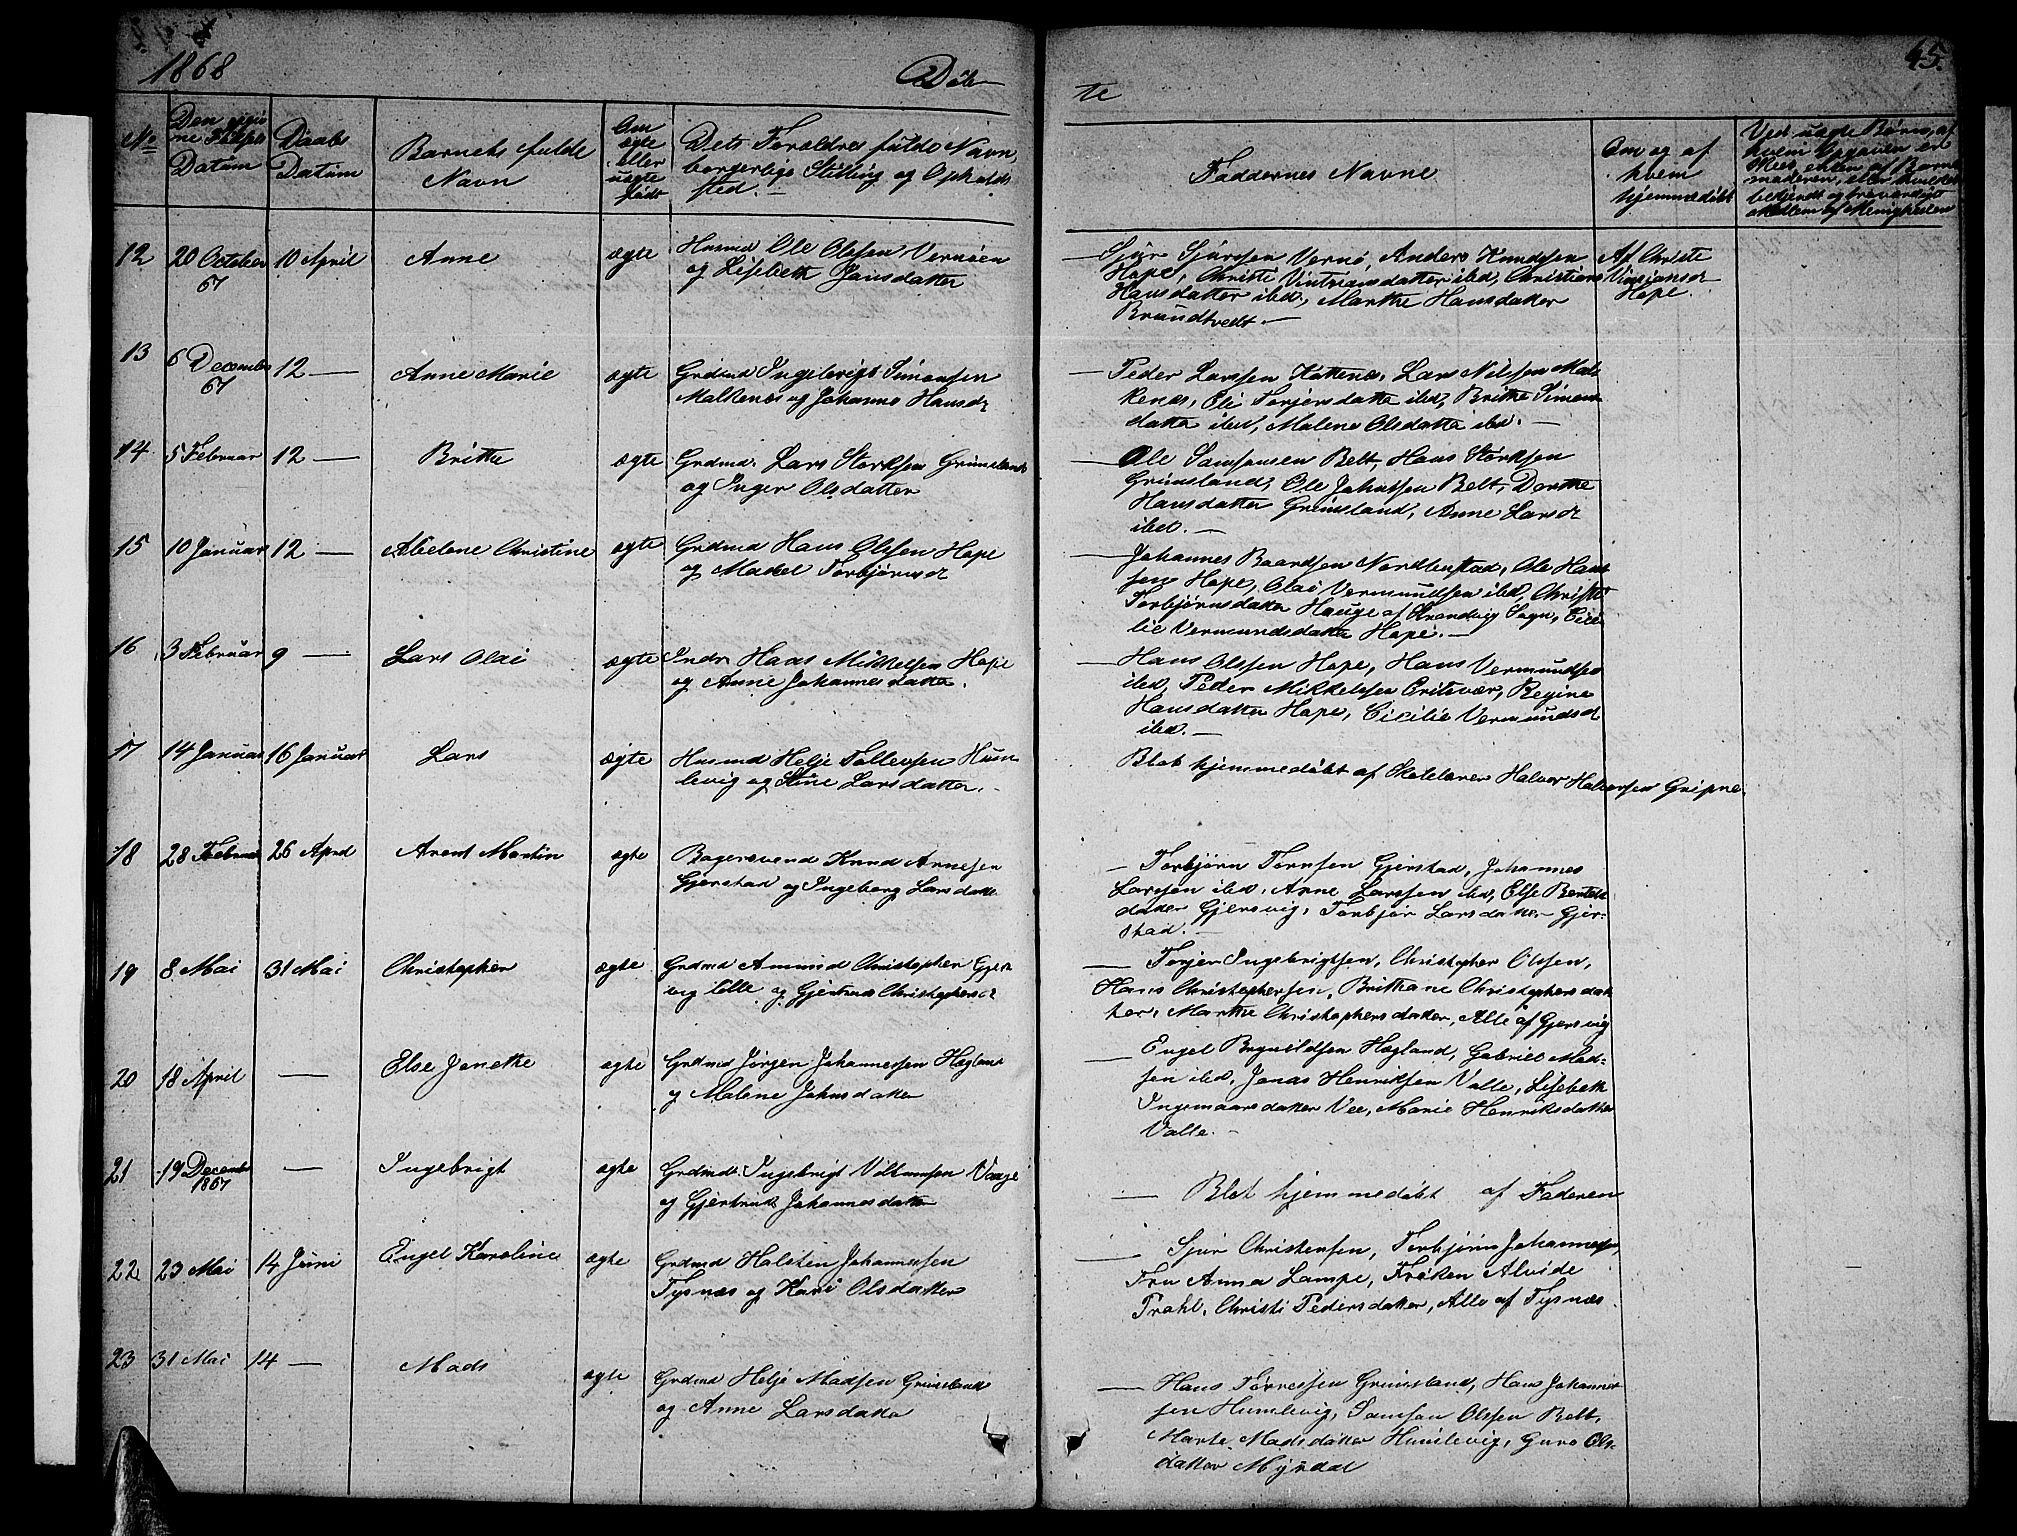 1868
Døb
te
45.
No
Den
Datum
Daabs
Datum
Barnets fulde
Navn
Om
ægte
eller
uægte
født
Dets Forældres fulde Navn,
borgerlige Stilling og Opholds
sted.
Faddernes Navne
Om og af
hvem
hjemmedøbt
Ved uægte Børn, af
hvem Opgaven er
12 20 October 67 10 April Anne ægte Husmd Ole Olssen Vernøen
og Lisebeth Jansdatter
Sjur Sjursen Vernø, Anders Knudssen
Hope, Christi datter ibid, Christiane
Hansdatter ibid, Marthe Hansdatter
Brundtvedt.
Af Christi
Hope.
13 6 December 67 12 — Anne Marie ægte Grdmd Ingebrigt Simonsen
Malkenes og Johanne Hansd
Peder Larssen Kattenes, Lars Nilssen Mal
kenæs, Eli Torjersdatter ibid, Britha Simons
datter ibid, Malene Olsdatter ibid.
14 5 Februar 12 — Brithe ægte Grdmd. Lars Størksen Grimsland
og Inger Olsdatter
Ole Samsonsen Belt, Hans Størksen
Grimsland, Ole Johnssen Belt, Dorthe
Hansdatter Grimsland, Anne Larsd
ibid.
15 10 Januar 12 — Abelene Christine ægte Grdmd Hans Olssen Hope
og Madel Torbjørnsd
Johannes Baardsen Nordbustad, Ole Hans
sen Hope, Olai Vermundsen ibid, Christi
Torbjørnsdatter Hauge af Strandvig Sogn, Cici
lie Vermundsdatter Hope.
16 3 Februar 9 — Lars Olai ægte Indr. Hans Mikkelsen Hope
og Anne Johannesdatter.
Hans Olssen Hope, Hans Vermundsen
ibid, Peder Mikkelssen Eritsvær, Regine
Hansdatter Hope, Cicilie Vermundsd
ibid.
17 14 Januar 16 Januar Lars ægte Husmd Helje Tollevsen Hum
levig og Stine Larsdatter.
Blot hjemmedøbt af Skolelærer Halvor Halvorsen Gripne.
18 28 Februar 26 April Arent Martin ægte Bagersvend Knud Arnesen
Gjerstad og Ingeborg Larsdatter
Torbjørn Tørnsen Gjerstad, Johannes
Larssen ibid, Arne Larssen ibid, Else Bentels
datter Gjersvig, Torbjør Larsdatter Gjer-
stad.
19 8 Mai 31 Mai Christopher ægte Grdmd Amund Christopher Gjers
vig lille og Gjertrud Christophersd
Torjer Ingebrigtsen, Christopher Olssen,
Hans Christophersen, Brithane Christophersdat
ter, Marthe Christophersdatter, Alle af Gjersvig
20 18 April — Else Jenethe ægte Grdmd Jørgen Johannessen Hægland
og Malene Johnsdatter
Engel Brynildsen Hægland, Gabriel Mad-
sen ibid, Jonas Henriksen Valle, Lisebeth
Ingemaarsdatter Vee, Marie Henriksdatter
Valle.
21 19 December 1867 — Ingebrigt ægte Grdmd. Ingebrigt Villumsen Vaage
og Gjertrud Johannesdatter
Blot hjemmedøbt af Faderen
22 23 Mai 14 Juni Engel Karoline ægte Grdmd Halsten Johannessen
Tysnæs og Kari Olsdatter
Sjur Christensen, Torbjørn Johannessen,
Fru Anna Lampe, Frøken Alvide
Prahl, Christi Pedersdatter, Alle af Tysnæs.
23 31 Mai 14 — Mads ægte Grdmd Helje Madsen Grimsland
og Anne Larsdatter
Hans Tørressen Grimsland, Hans Johannes
sen Humlevig, Samson Olssen Belt,
Marte Madsdatter Humlevig, Guro Ols-
datter Myrdal